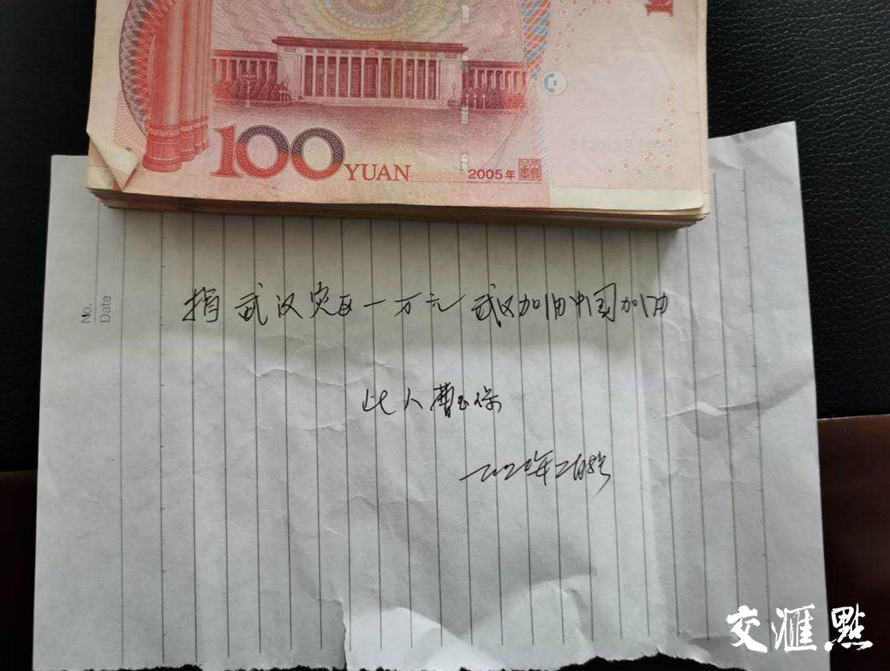 100 YUAN
2005年
No.
Date
捐武汉灾区一万元 武汉加油中国加油
此人曹玉保
二〇二〇年二月8号
交汇點